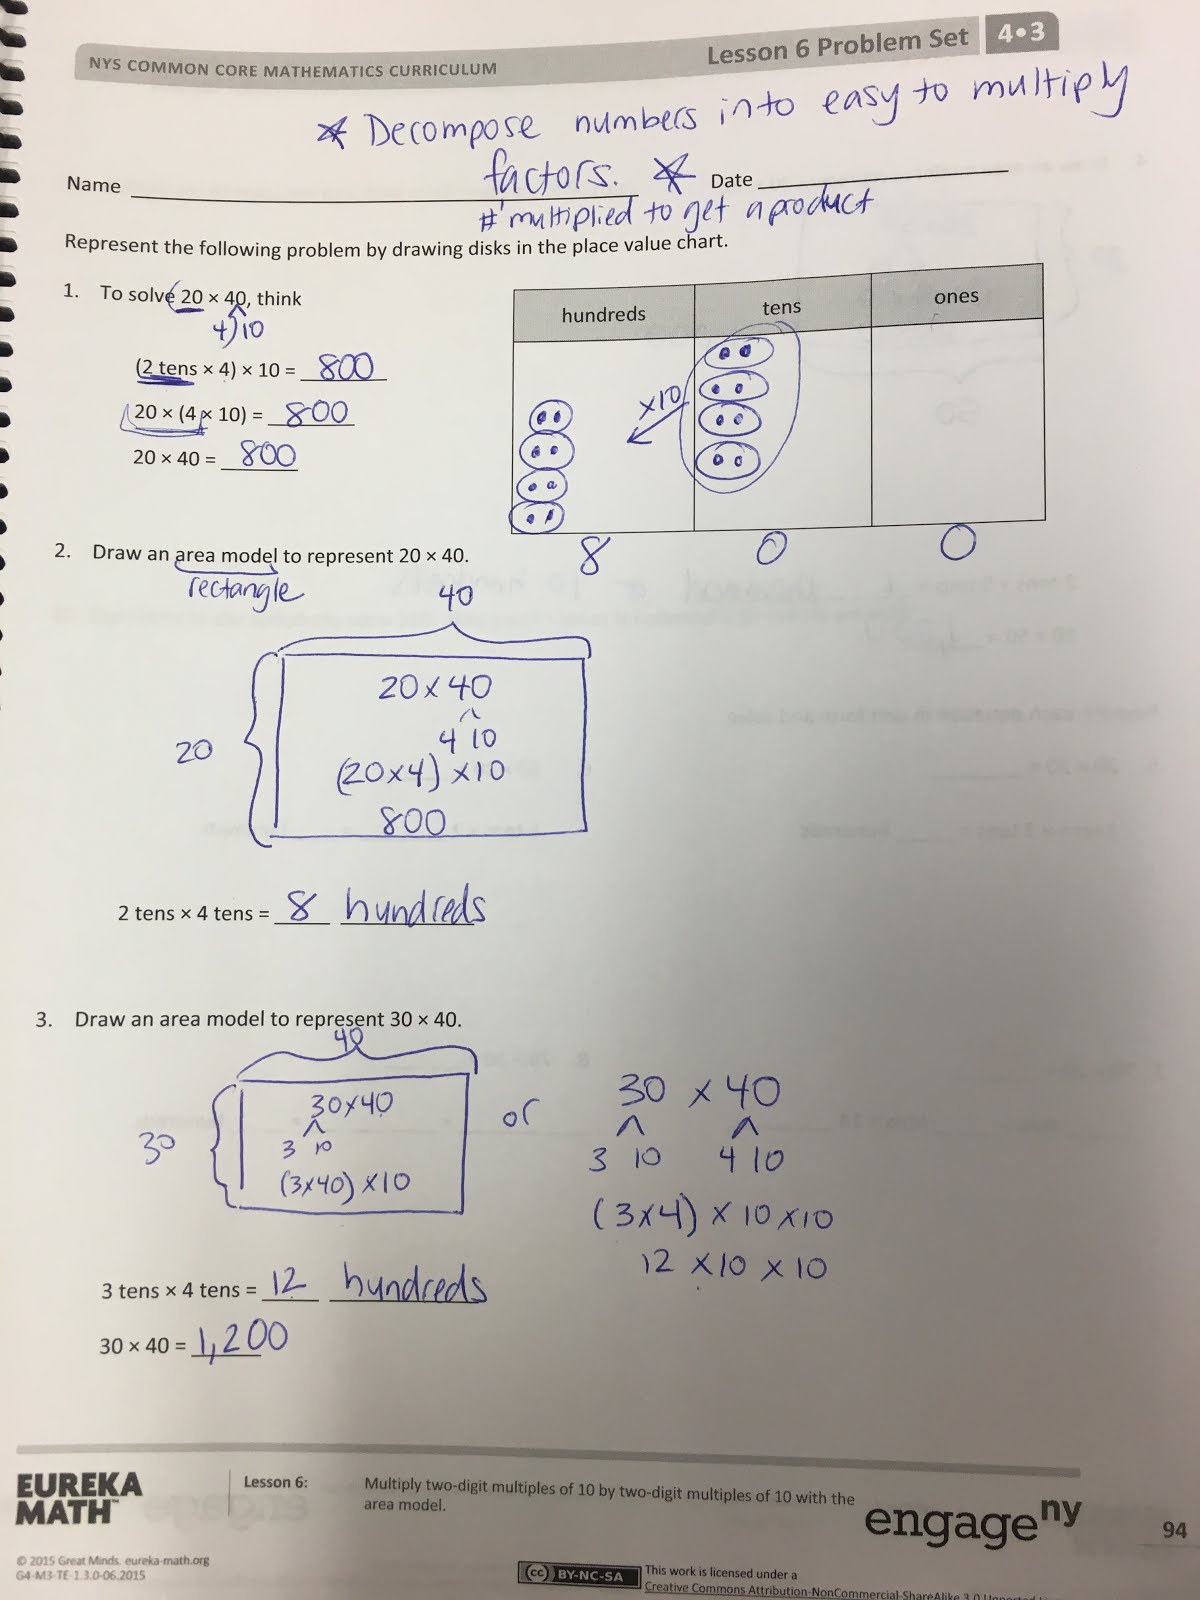 NYS COMMON CORE MATHEMATICS CURRICULUM
Lesson 6 Problem Set
4•3
* Decompose numbers into easy to multiply
factors. *
Name
Date
#'multiplied to get a product
Represent the following problem by drawing disks in the place value chart.
1. To solve 20 × 40, think
4 10
(2 tens × 4) × 10 = 800
20 × (4 × 10) = 800
20 × 40 = 800
hundreds tens ones
×10
8 0 0
2. Draw an area model to represent 20 × 40.
rectangle
40
20
20 x 40
4 10
(20x4) x10
800
2 tens × 4 tens = 8 hundreds
3. Draw an area model to represent 30 × 40.
40
30
30x40
3 10
(3x40) x10
or
30 x 40
3 10 4 10
(3x4) x 10 x10
12 x10 x 10
3 tens × 4 tens = 12 hundreds
30 × 40 = 1,200
EUREKA
MATH™
Lesson 6:
Multiply two-digit multiples of 10 by two-digit multiples of 10 with the
area model.
engage ny
94
© 2015 Great Minds. eureka-math.org
G4-M3-TE-1.3.0-06.2015
(cc) BY-NC-SA
This work is licensed under a
Creative Commons Attribution-NonCommercial-ShareAlike 3.0